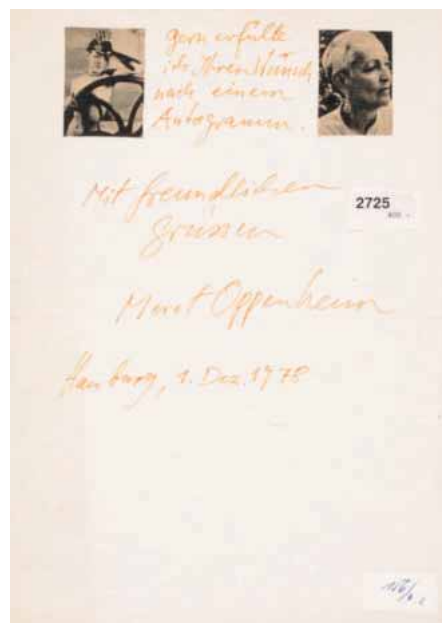 gern erfülle
ich Ihren Wunsch
nach einem
Autogramm.
Mit freundlichen
Grüssen
2725
Meret Oppenheim
Hamburg, 1. Dez. 1978